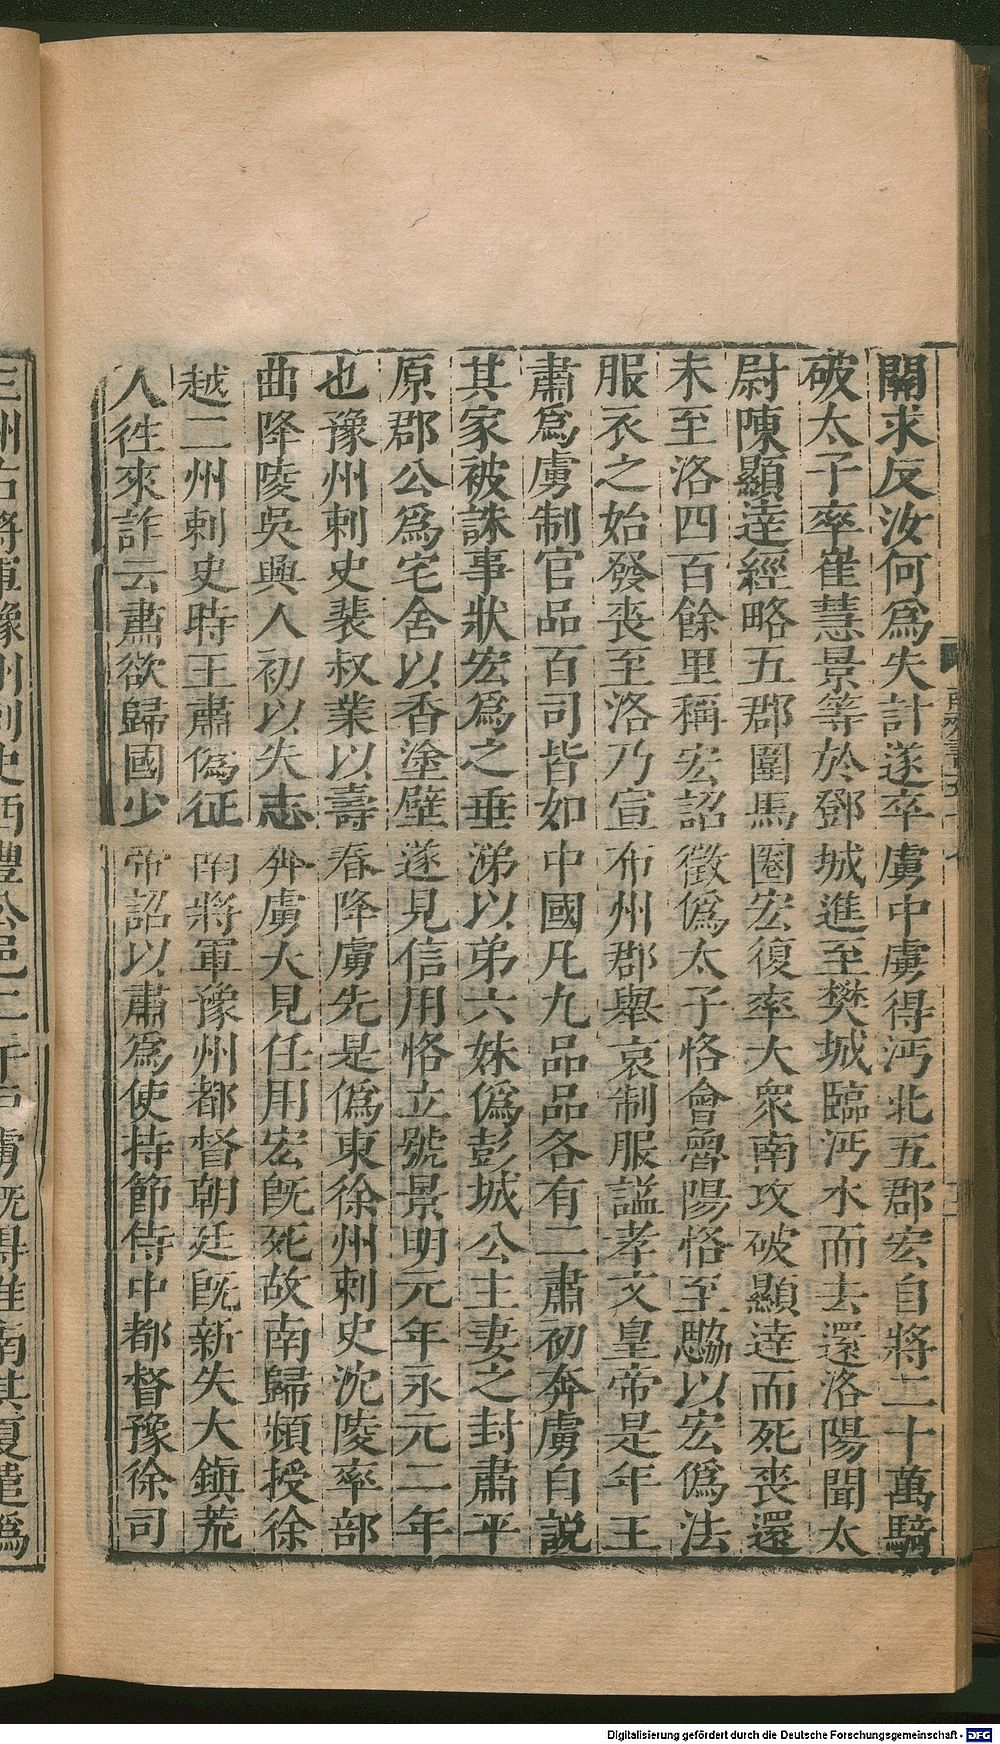 關求反汝何爲失計遂卒虜中虜得沔北五郡宏自將二十萬騎
破太子率崔慧景等於鄧城進至樊城臨沔水而去還洛陽聞太
尉陳顯達經略五郡圍馬圈宏復率大衆南攻破顯達而死喪還
未至洛四百餘里稱宏詔徵僞太子恪會魯陽恪至勰以宏僞法
服衣之始發喪至洛乃宣布州郡舉哀制服謚孝文皇帝是年王
肅爲虜制官品百司皆如中國凡九品品各有二肅初奔虜自說
其家被誅事狀宏爲之垂涕以弟六妹僞彭城公主妻之封肅平
原郡公爲宅舍以香塗壁遂見信用恪立號景明元年永元二年
也豫州刺史裴叔業以壽春降虜先是僞東徐州刺史沈陵率部
曲降陵吳興人初以失志奔虜大見任用宏旣死故南歸頻授徐
越二州刺史時王肅僞征南將軍豫州都督朝廷旣新失大鎮荒
人徃來詐云肅欲歸國少帝詔以肅爲使持節侍中都督豫徐司
三州右將軍豫州刺史西豐公邑二千戸虜旣得淮南其夏遣爲
Digitalisierung gefördert durch die Deutsche Forschungsgemeinschaft - DFG